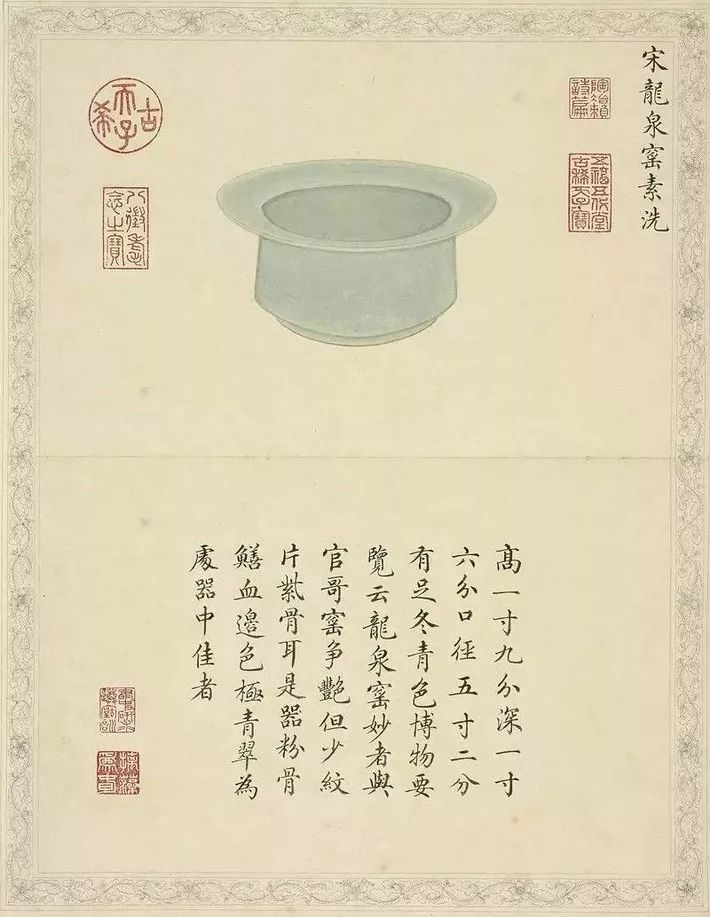 宋龍泉窰素洗
五福五代堂古稀天子寶
古希天子
八徵耄念之寶
髙一寸九分深一寸
六分口徑五寸二分
有足冬青色博物要
覽云龍泉窰妙者與
官哥窰争艷但少紋
片紫骨耳是器粉骨
鱔血邊色極青翠為
處器中佳者